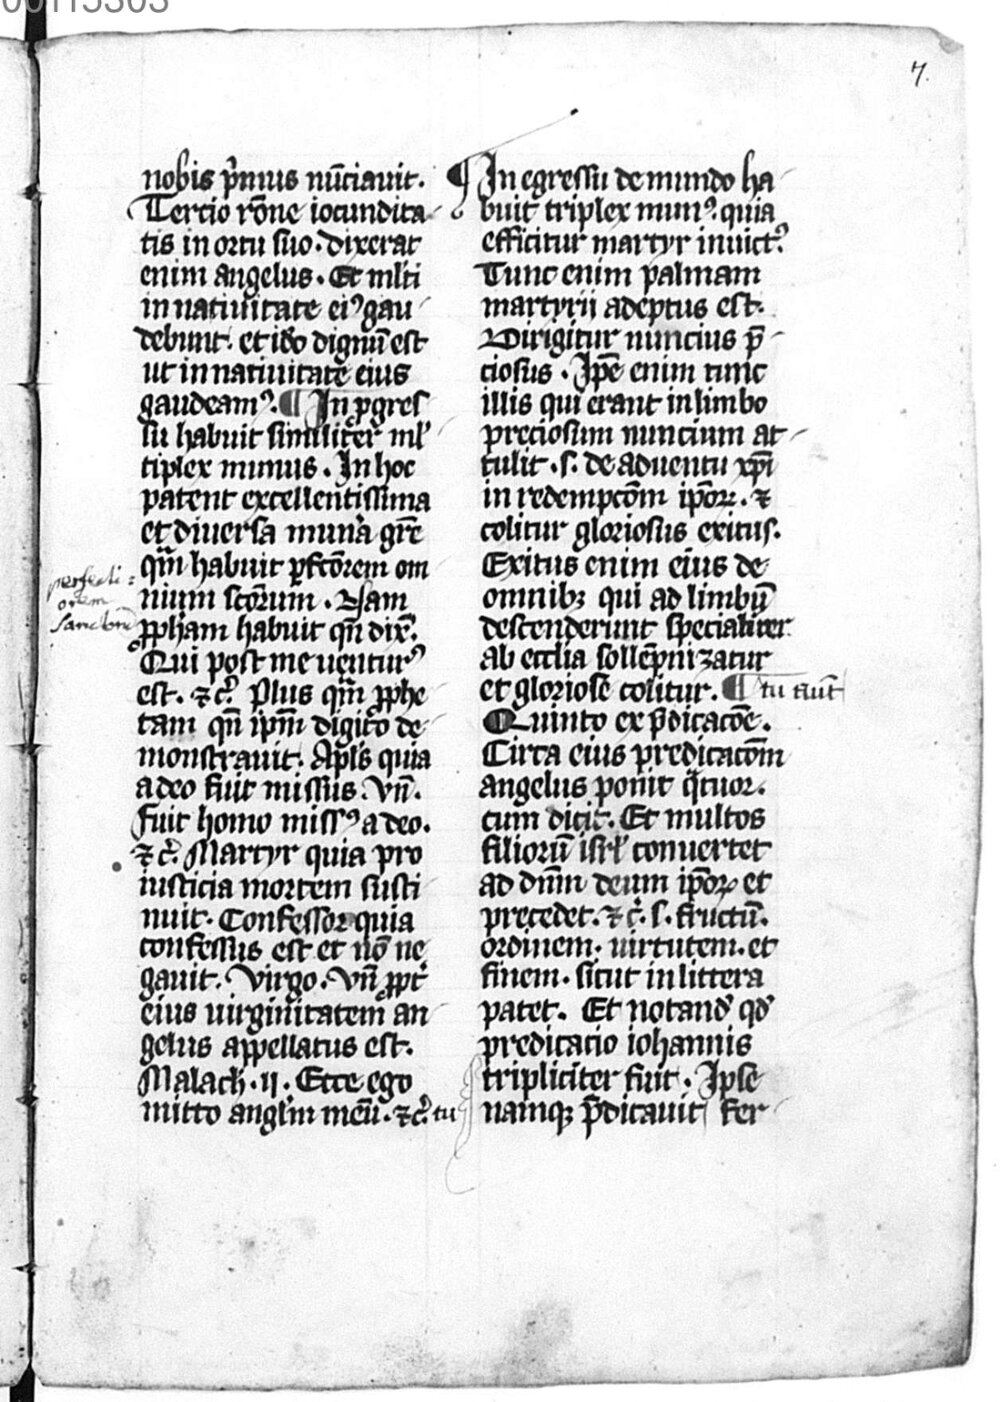 00115303
7.
nobis p̄mius nūciauit.
Tercio rōne iocundita
tis in ortu suo. dixerat
enim angelus. Et ml̄ti
in natiuitate eiꝰ gau
debunt. et iđo dignū est
ut in natiuitate eius
gaudeamꝰ. ¶ In ꝓgres
su habuit similiter ml̄
tiplex munus. In hoc
patent excellentissima
et diuersa munera gr̄e
qm̄ habuit ꝑfc̄orem om
nium sc̄orum. Nam
ꝓpħam habuit qn̄ dix̄.
Qui post me uenturꝰ
est. ⁊c̄. Plus qm̄ ꝓphe
tam qn̄ ip̄m digito de
monstrauit. Apl̄s quia
a deo fuit missus. Vn̄.
Fuit homo missꝰ a deo.
⁊c̄. Martyr quia pro
iusticia mortem susti
nuit. Confessor quia
confessus est et nō ne
gauit. Virgo. vn̄ ꝓpt̄
eius uirginitatem an
gelus appellatus est.
Malach. ii. Ecce ego
mitto angl̄m meū. ⁊c̄. tu
perfecti=
orem
sanctorū
¶ In egressu de mundo ha
buit triplex munꝰ. quia
efficitur martyr inuictꝰ.
Tunc enim palmam
martyrii adeptus est.
Dirigitur nuncius p̄
ciosus. Ip̄e enim tunc
illis qui erant in limbo
preciosum nuncium at
tulit. s. de aduentu xp̄i
in redempcōm ip̄oꝝ. ⁊
colitur gloriosus exitus.
Exitus enim eius de
omnibꝫ qui ad limbū
descenderunt specialiter
ab ecclīa sollēpnizatur
et gloriose colitur. ¶ tu aut̄
Quinto ex p̄dicacōe.
Circa eius predicacōm
angelus ponit q̄tuor.
cum dicit. Et multos
filiorū isrl̄ conuertet
ad dn̄m deum ip̄oꝝ et
precedet. ⁊c̄. s. fructū.
ordinem. uirtutem. et
finem. sicut in littera
patet. Et notand̄ qđ
predicatio iohannis
tripliciter fuit. Ipse
namqꝫ p̄dicauit fer